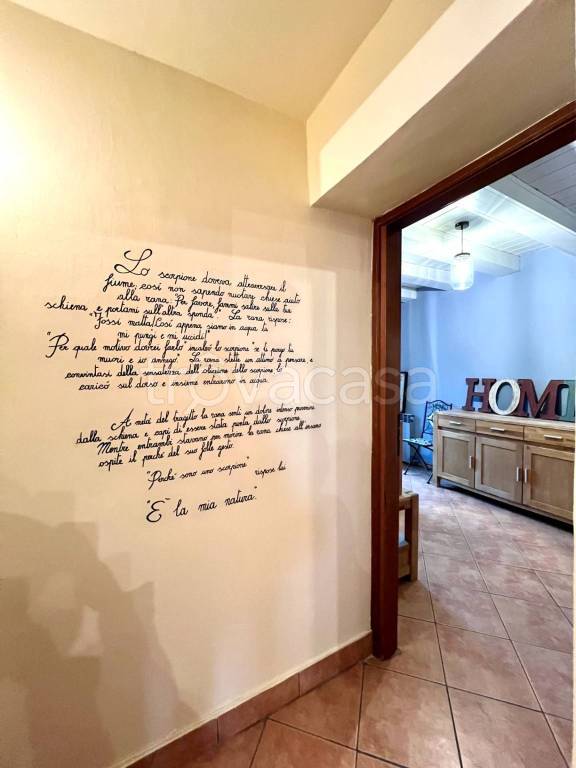 Lo scorpione doveva attraversare il
fiume, così non sapendo nuotare, chiese aiuto
alla rana: "Per favore, fammi salire sulla tua
schiena e portami sull'altra sponda." La rana rispose:
"Fossi matta! Così appena siamo in acqua
mi pungi e mi uccidi!"
"Per quale motivo dovrei farlo" incalzò lo scorpione "se ti pungo tu
muori e io annego." La rana stette un attimo a pensare, e
convintasi della sensatezza dell'obiezione dello scorpione lo
caricò sul dorso e insieme entrarono in acqua.
A metà del tragitto la rana sentì un dolore intenso provenire
dalla schiena e capì di essere stata punta dallo scorpione.
Mentre entrambi stavano per morire la rana chiese all'insano
ospite il perché del suo folle gesto.
"Perché sono uno scorpione" rispose lui
"E' la mia natura".
trovacasa
HOME